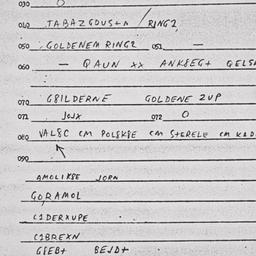 030 O
040 TABAZGOUSTA / RING2
050 GOLDENEM RING2 051 —
060 — QAUN xx ANK8EG+ GELS
070 G8ILDERNE GOLDENE ZUP
071 JOJX 072 O
080 VAL8C CM POL8K8E CM STERELE CM KAD
090
AMOLIK8E JORN
GORAMOL
C2DERXUPE
C2BREXN
G8EB+ BEJD+